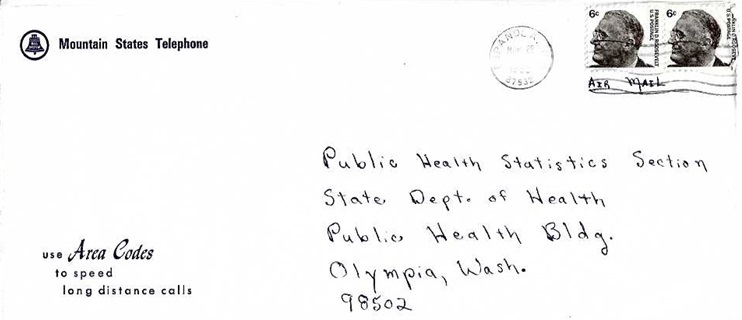 Mountain States Telephone
6c 6c
FRANKLIN D. ROOSEVELT
U.S. POSTAGE
AIR MAIL
Public Health Statistics Section
State Dept. of Health
Public Health Bldg.
Olympia, Wash.
98502
use Area Codes
to speed
long distance calls